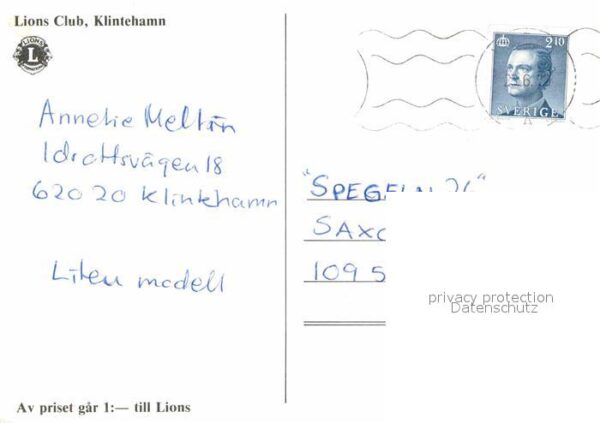 Lions Club, Klintehamn
LIONS
L
2.10
SVERIGE
Annelie Meltin
Idrottsvägen 18
620 20 Klintehamn
"SPEGELN
SAXO
109 5
Liten modell
privacy protection
Datenschutz
Av priset går 1:— till Lions